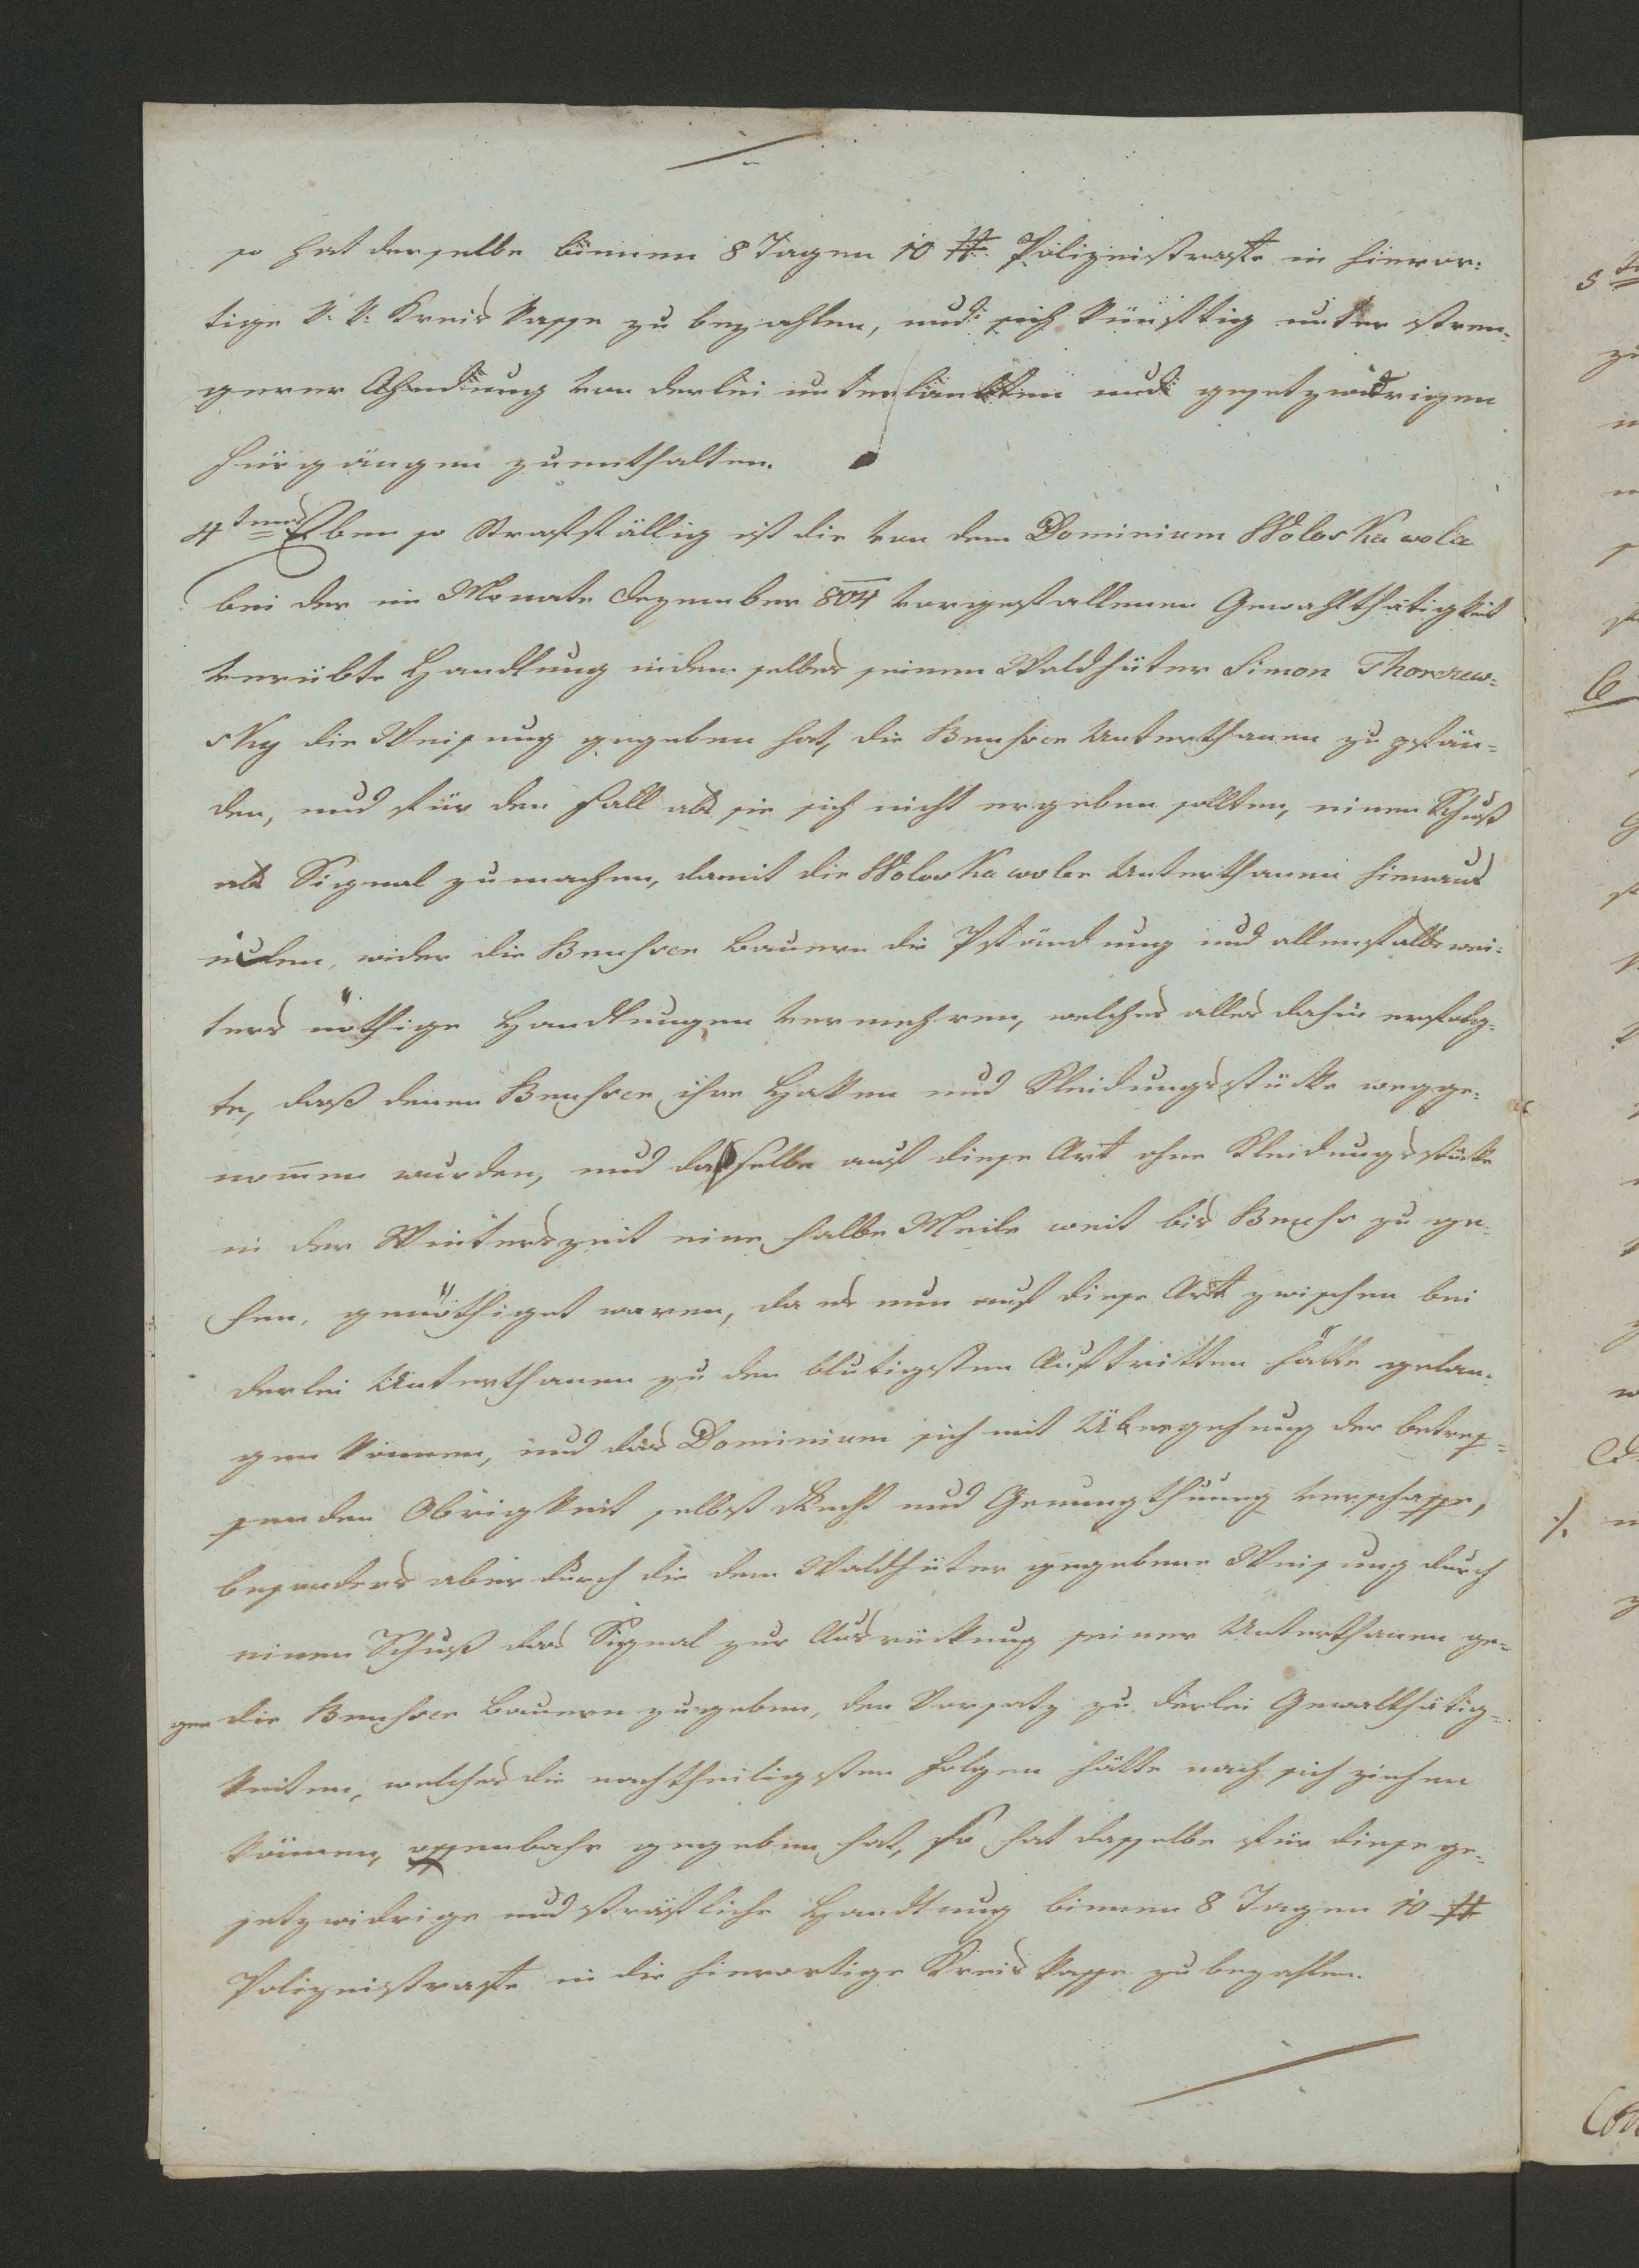 so hat derselbe binnen 8 Tagen 10 # Polizeistraffe in hieror:
tige k: k: Kreis Kasse zu bezahlen, und sich künftig unter stren-
gerer Ahndung von derlei und gesetzwidrigen
Fürgängen zuenthalten.
4tens Eben so Straffällig ist die von dem Dominium Woloskawola
bei der im Monate Dezember 804 vorgefallenen Gewaltthätigkeit
verübte Handlung indem selbes seinem Waldhüter Simon Thorzew=
sky die Weisung gegeben hat, die Beuhser Unterthanen zu pfän=
den, und für den Fall als sie sich nicht ergeben sollten, einen Schuß
als Signal zumachen, damit die Woloskawoler Unterthanen hinaus
eilen, wider die Beuhser Bauern die Pfändung und allenfalls wei-
ters nöthige Handlungen vermehren, welches alles dahin erfolg-
te, daß denen Beuhser ihre Haken und Kleidungsstücke wegge-
nom̄en wurden, und dasselbe auf diese Art ohne Kleidungsstücke
in der Winterszeit eine halbe Meile weit bis Beuhs zu ge-
hen, genöthiget waren, da es nun auf diese Art zwischen bei
derlei Unterthanen zu den blutigsten Auftritten hätte gelan-
gen können, und das Dominium sich mit Übergehung der betref=
fenden Obrigkeit selbst Recht und Genungthuung verschaffe,
besonders aber durch die dem Waldhüter gegebene Weisung durch
einen Schuß das Signal zur Ausrückung seiner Unterthanen ge-
gen die Beuhser Bauern zugeben, den Vorsatz zu derlei Gewaltthätig=
keiten, welches die nachtheiligsten Folgen hätte nach sich ziehen
können, offenbahr gegeben hat, so hat dasselbe für diese ge-
setzwidrige und sträfliche Handlung binnen 8 Tagen 10 #
Polizeistraffe in die hierortige Kreis Kasse zu bezahlen.